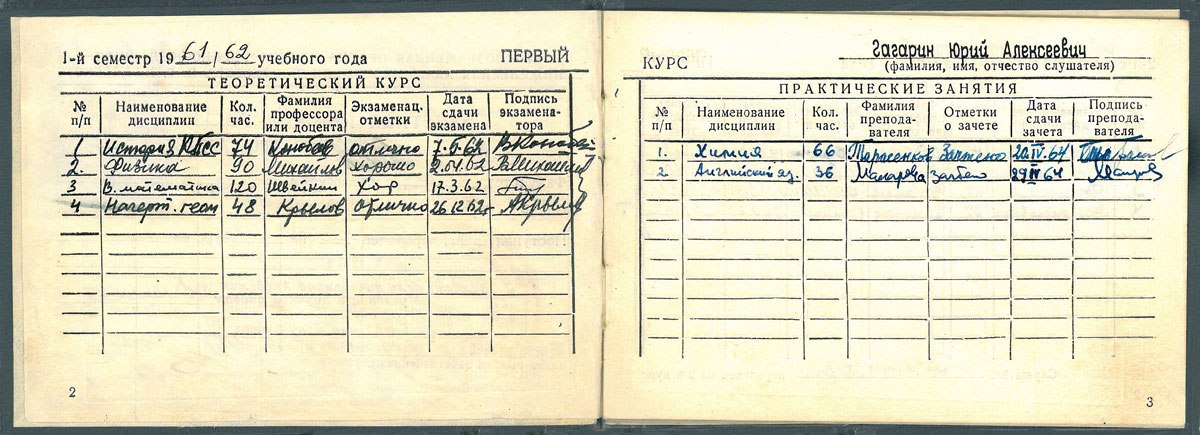 1-й семестр 1961/62 учебного года ПЕРВЫЙ
ТЕОРЕТИЧЕСКИЙ КУРС
№ п/п Наименование дисциплин Кол. час. Фамилия профессора или доцента Экзаменац. отметки Дата сдачи экзамена Подпись экзаменатора
1 История КПСС 74 отлично 7.5.62
2. Физика 90 Михайлов Хорошо 2.04.62
3 В. математика 120 Швейкин Хор 17.3.62
4 Начерт. геом 48 Крылов отлично 26.12.62г. АКрылов
2
Гагарин Юрий Алексеевич
КУРС (фамилия, имя, отчество слушателя)
ПРАКТИЧЕСКИЕ ЗАНЯТИЯ
№ п/п Наименование дисциплин Кол. час. Фамилия преподавателя Отметки о зачете Дата сдачи зачета Подпись преподавателя
1. Химия 66 Тарасенков Зачтено IV.64
2. Английский яз. 36 Макарова Зачтено 29 IV 64
3